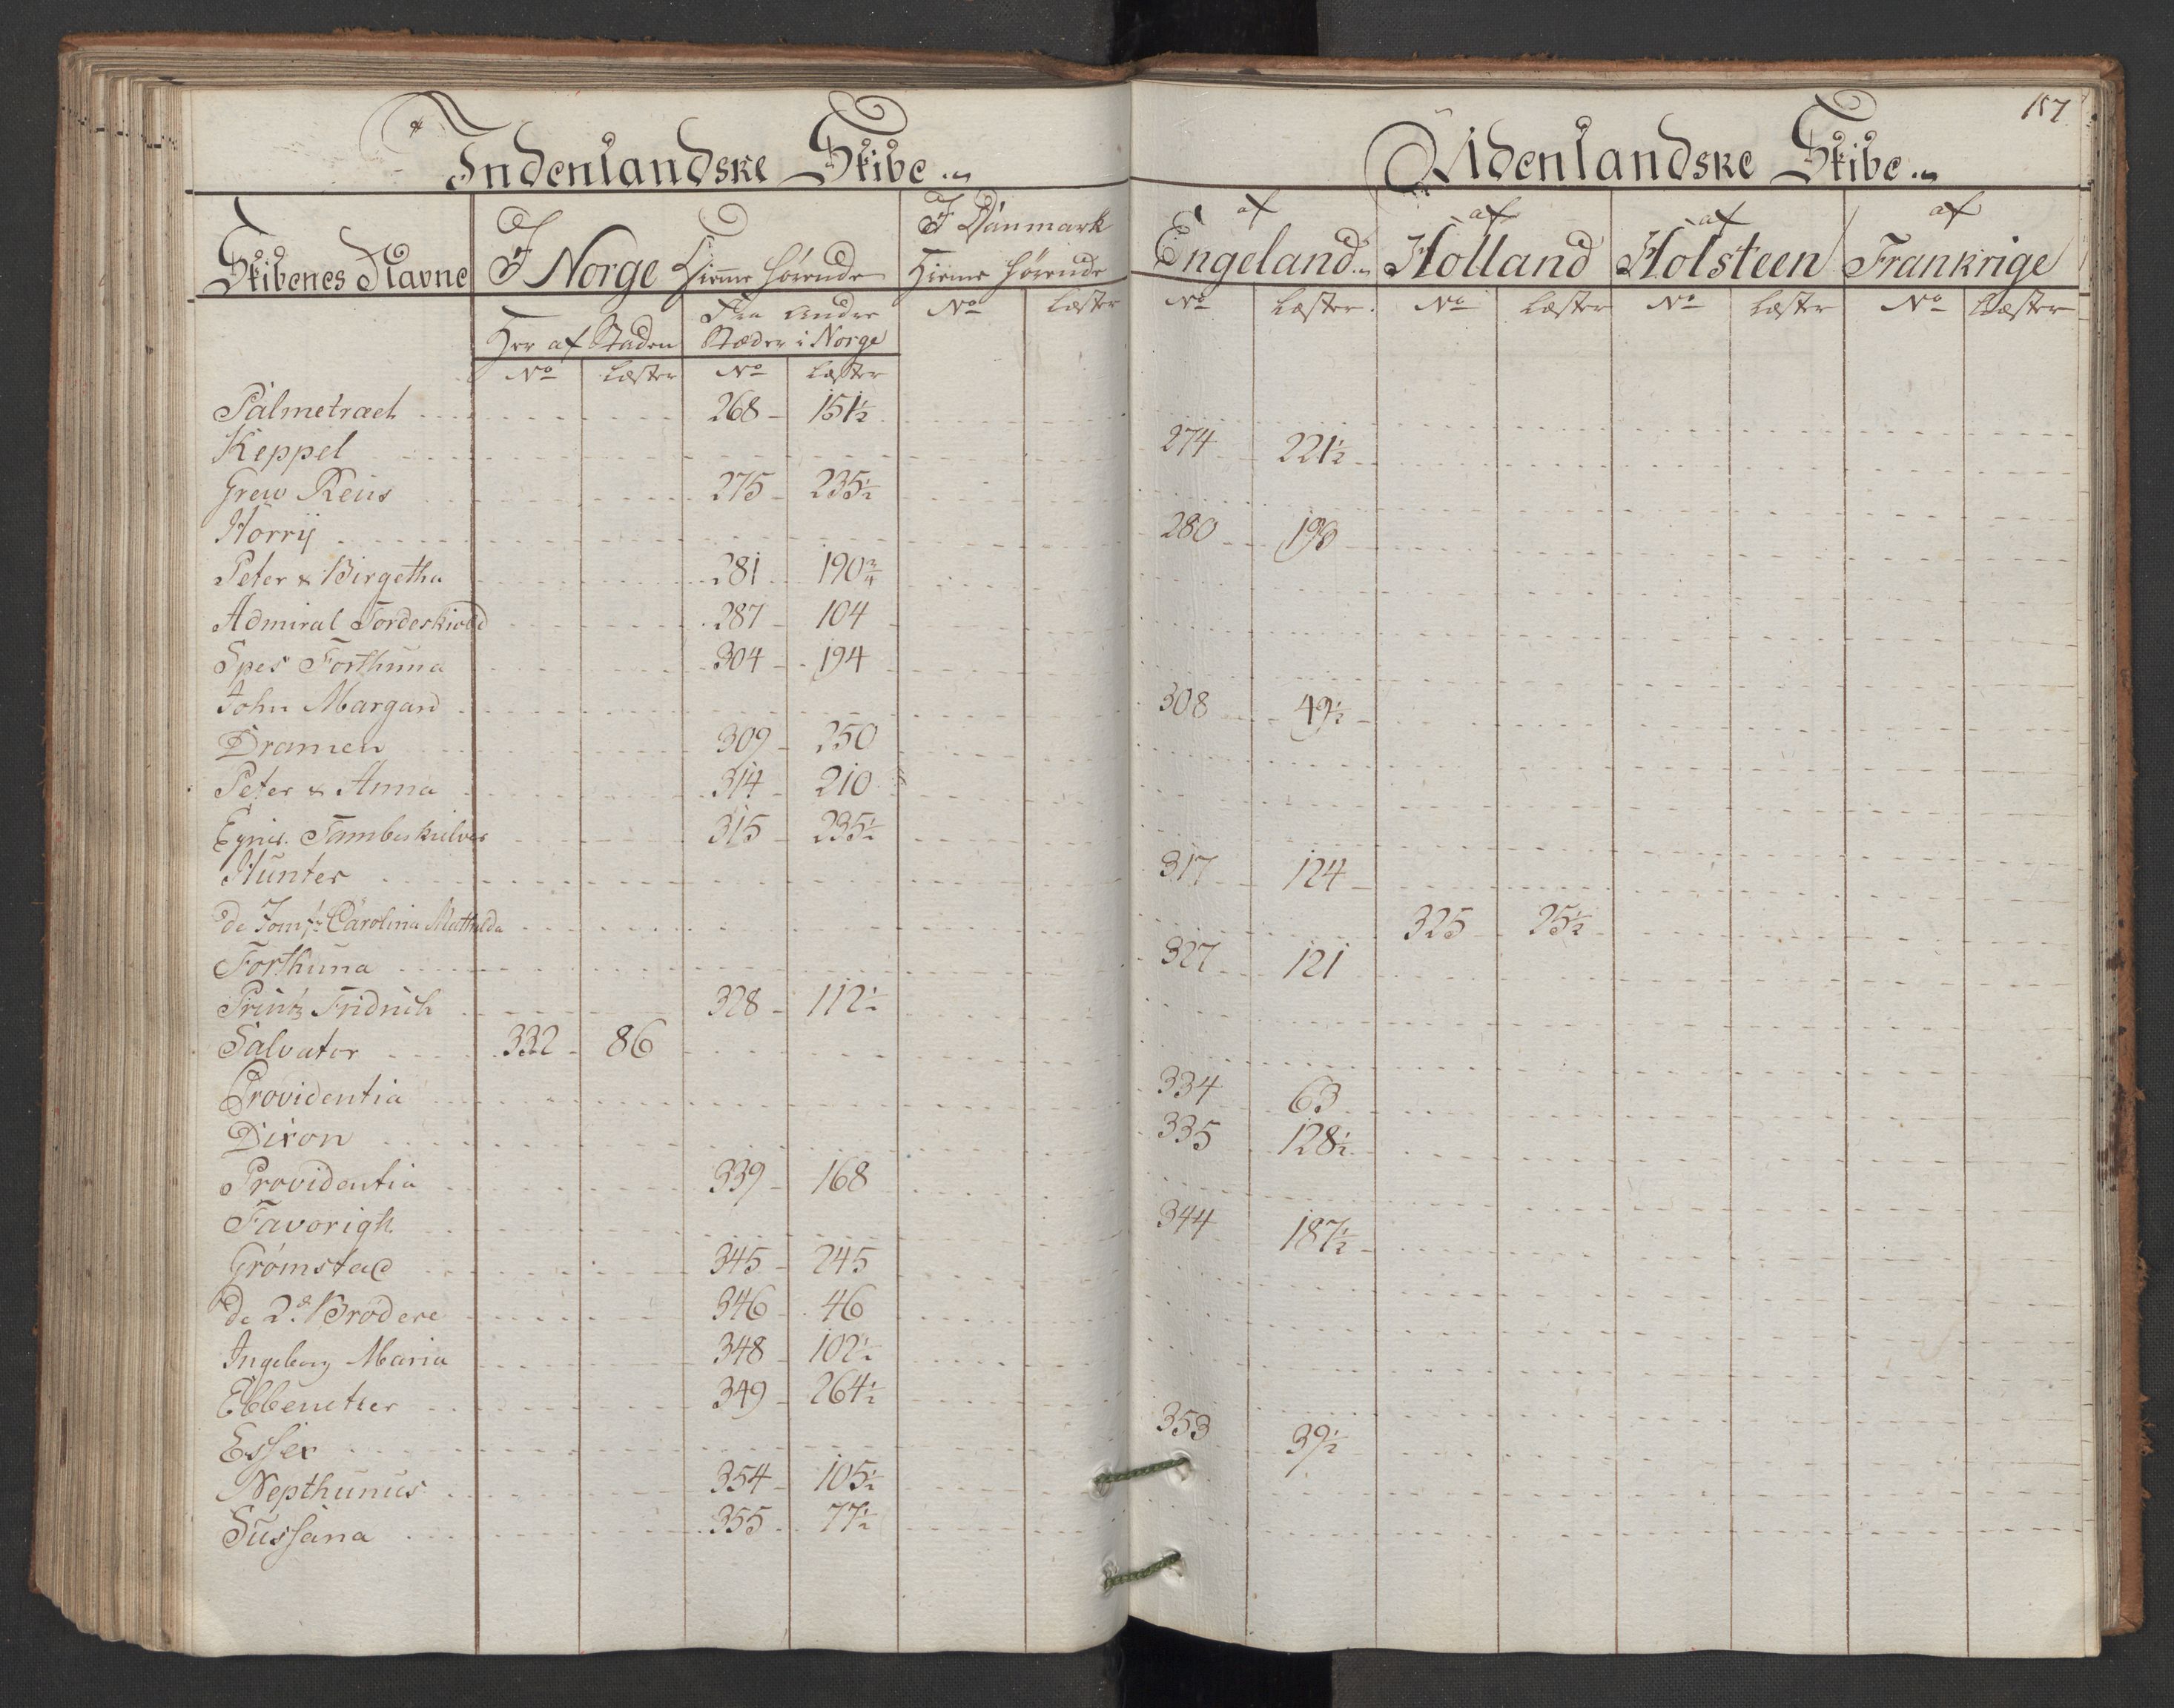 Indenlandske Skibe
Udenlandske Skibe
157
Skibenes Navne
I Norge Hiemme hørende
I Danmark
Hieme hørende
af Engeland
af Holland
af Holsteen
af Frankrige
Her af Staden
Fra Andre
Stæder i Norge
No Læster No Læster No Læster No Læster No Læster No Læster No Læster
Palmetræet 268 151½
Keppel 274 221½
Grew Reus 275 235½
Horrij 280 198
Peter & Birgetha 281 190¾
Admiral Tordeskiold 287 104
Spes Forthuna 304 194
John Margard 308 49½
Dramen 309 250
Peter & Anna 314 210
Eynis. Tambeskielver 315 235½
Hunter 317 124
de Jomfr: Carolina Mathilda 325 25½
Forthuna 327 121
Printz Fridrich 328 112½
Salvator 332 86
Providentia 334 63
Dixon 335 128½
Providentia 339 168
Favorigh 344 187½
Grømstad 345 245
De 2de Brødere 346 46
Ingeborg Maria 348 102½
Ebbenetzer 349 264½
Essex 353 39½
Nepthunus 354 105½
Sussana 355 77½